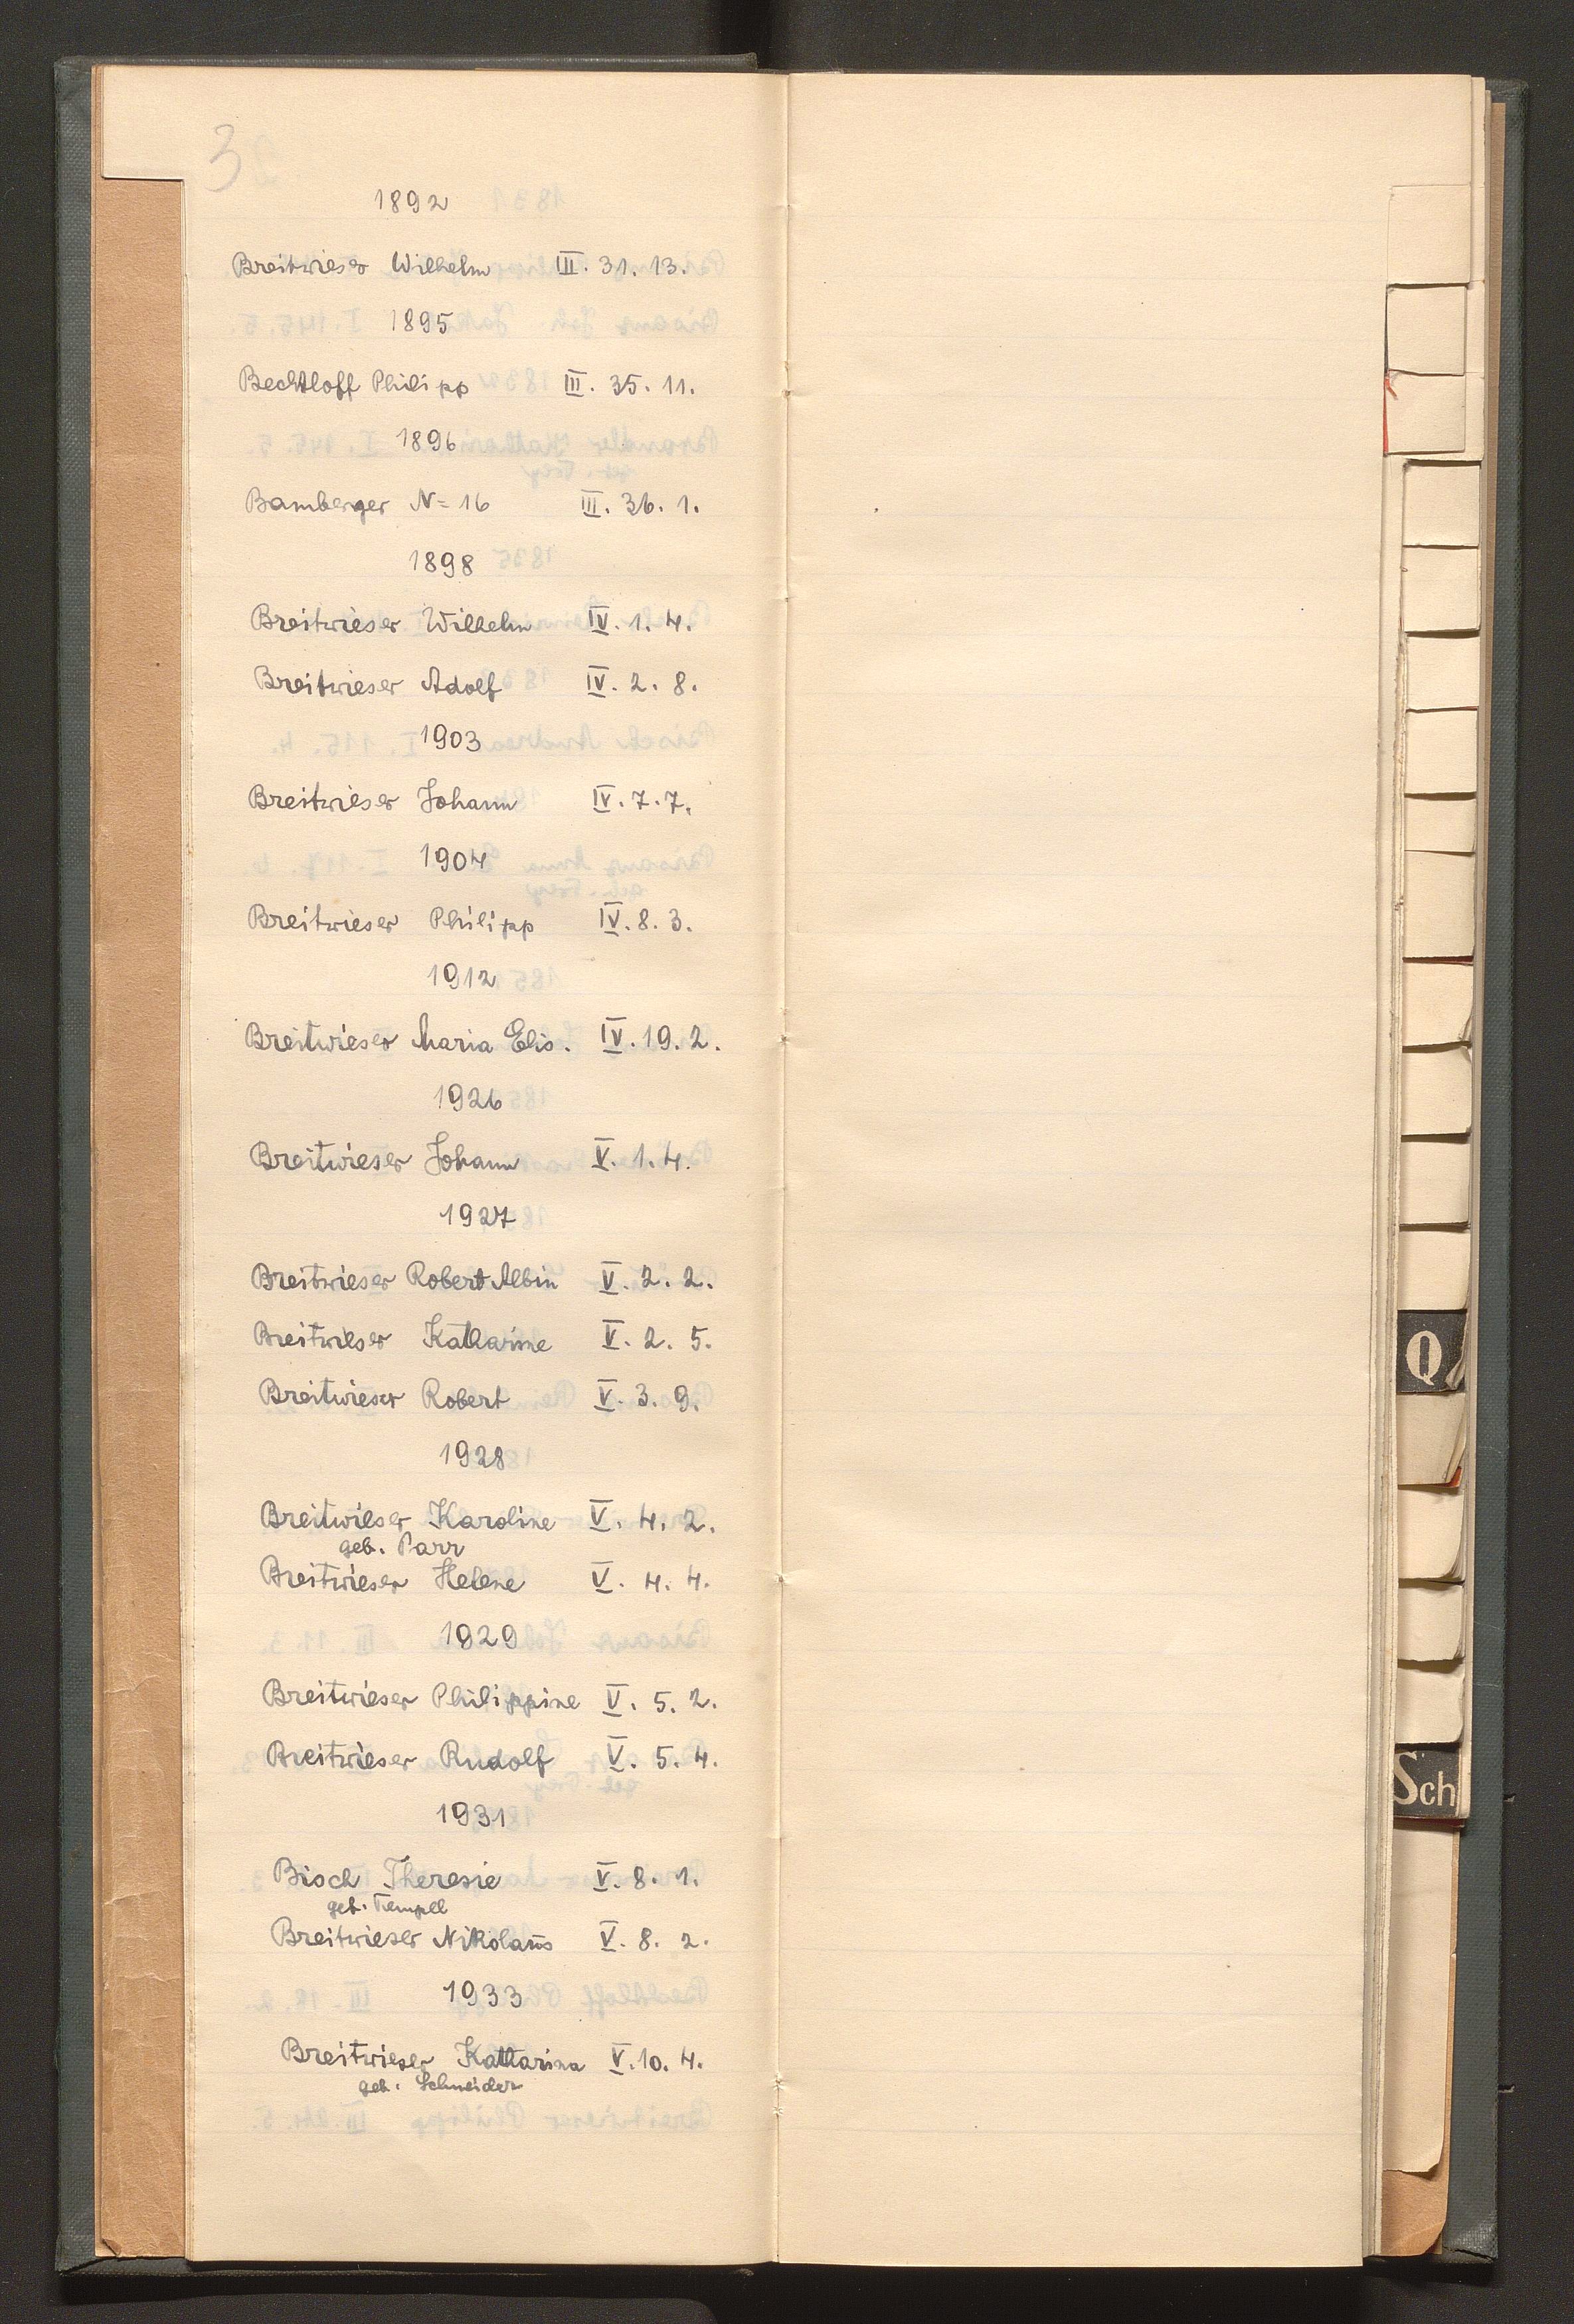 3
1892
Breitwieser Wilhelm III. 31. 13.
1895
Bechtloff Philipp III. 35. 11.
1896
Bamberger N=16 III. 36. 1.
1898
Breitwieser Wilhelm IV. 1. 4.
Breitwieser Adolf IV. 2. 8.
1903
Breitwieser Johann IV. 7. 7.
1904
Breitwieser Philipp IV. 8. 3.
1912
Breitwieser Maria Elis. IV. 19. 2.
1926
Breitwieser Johann V. 1. 4.
1927
Breitwieser Robert Albin V. 2. 2.
Breitwieser Katharine V. 2. 5.
Breitwieser Robert V. 3. 9.
1928
Breitwieser Karoline V. 4. 2.
geb. Parr
Breitwieser Helene V. 4. 4.
1929
Breitwieser Philippine V. 5. 2.
Breitwieser Rudolf V. 5. 4.
1931
Bisch Theresie V. 8. 1.
geb. Tempel
Breitwieser Nikolaus V. 8. 2.
1933
Breitwieser Katharina V. 10. 4.
geb. Schneider
Q
Sch